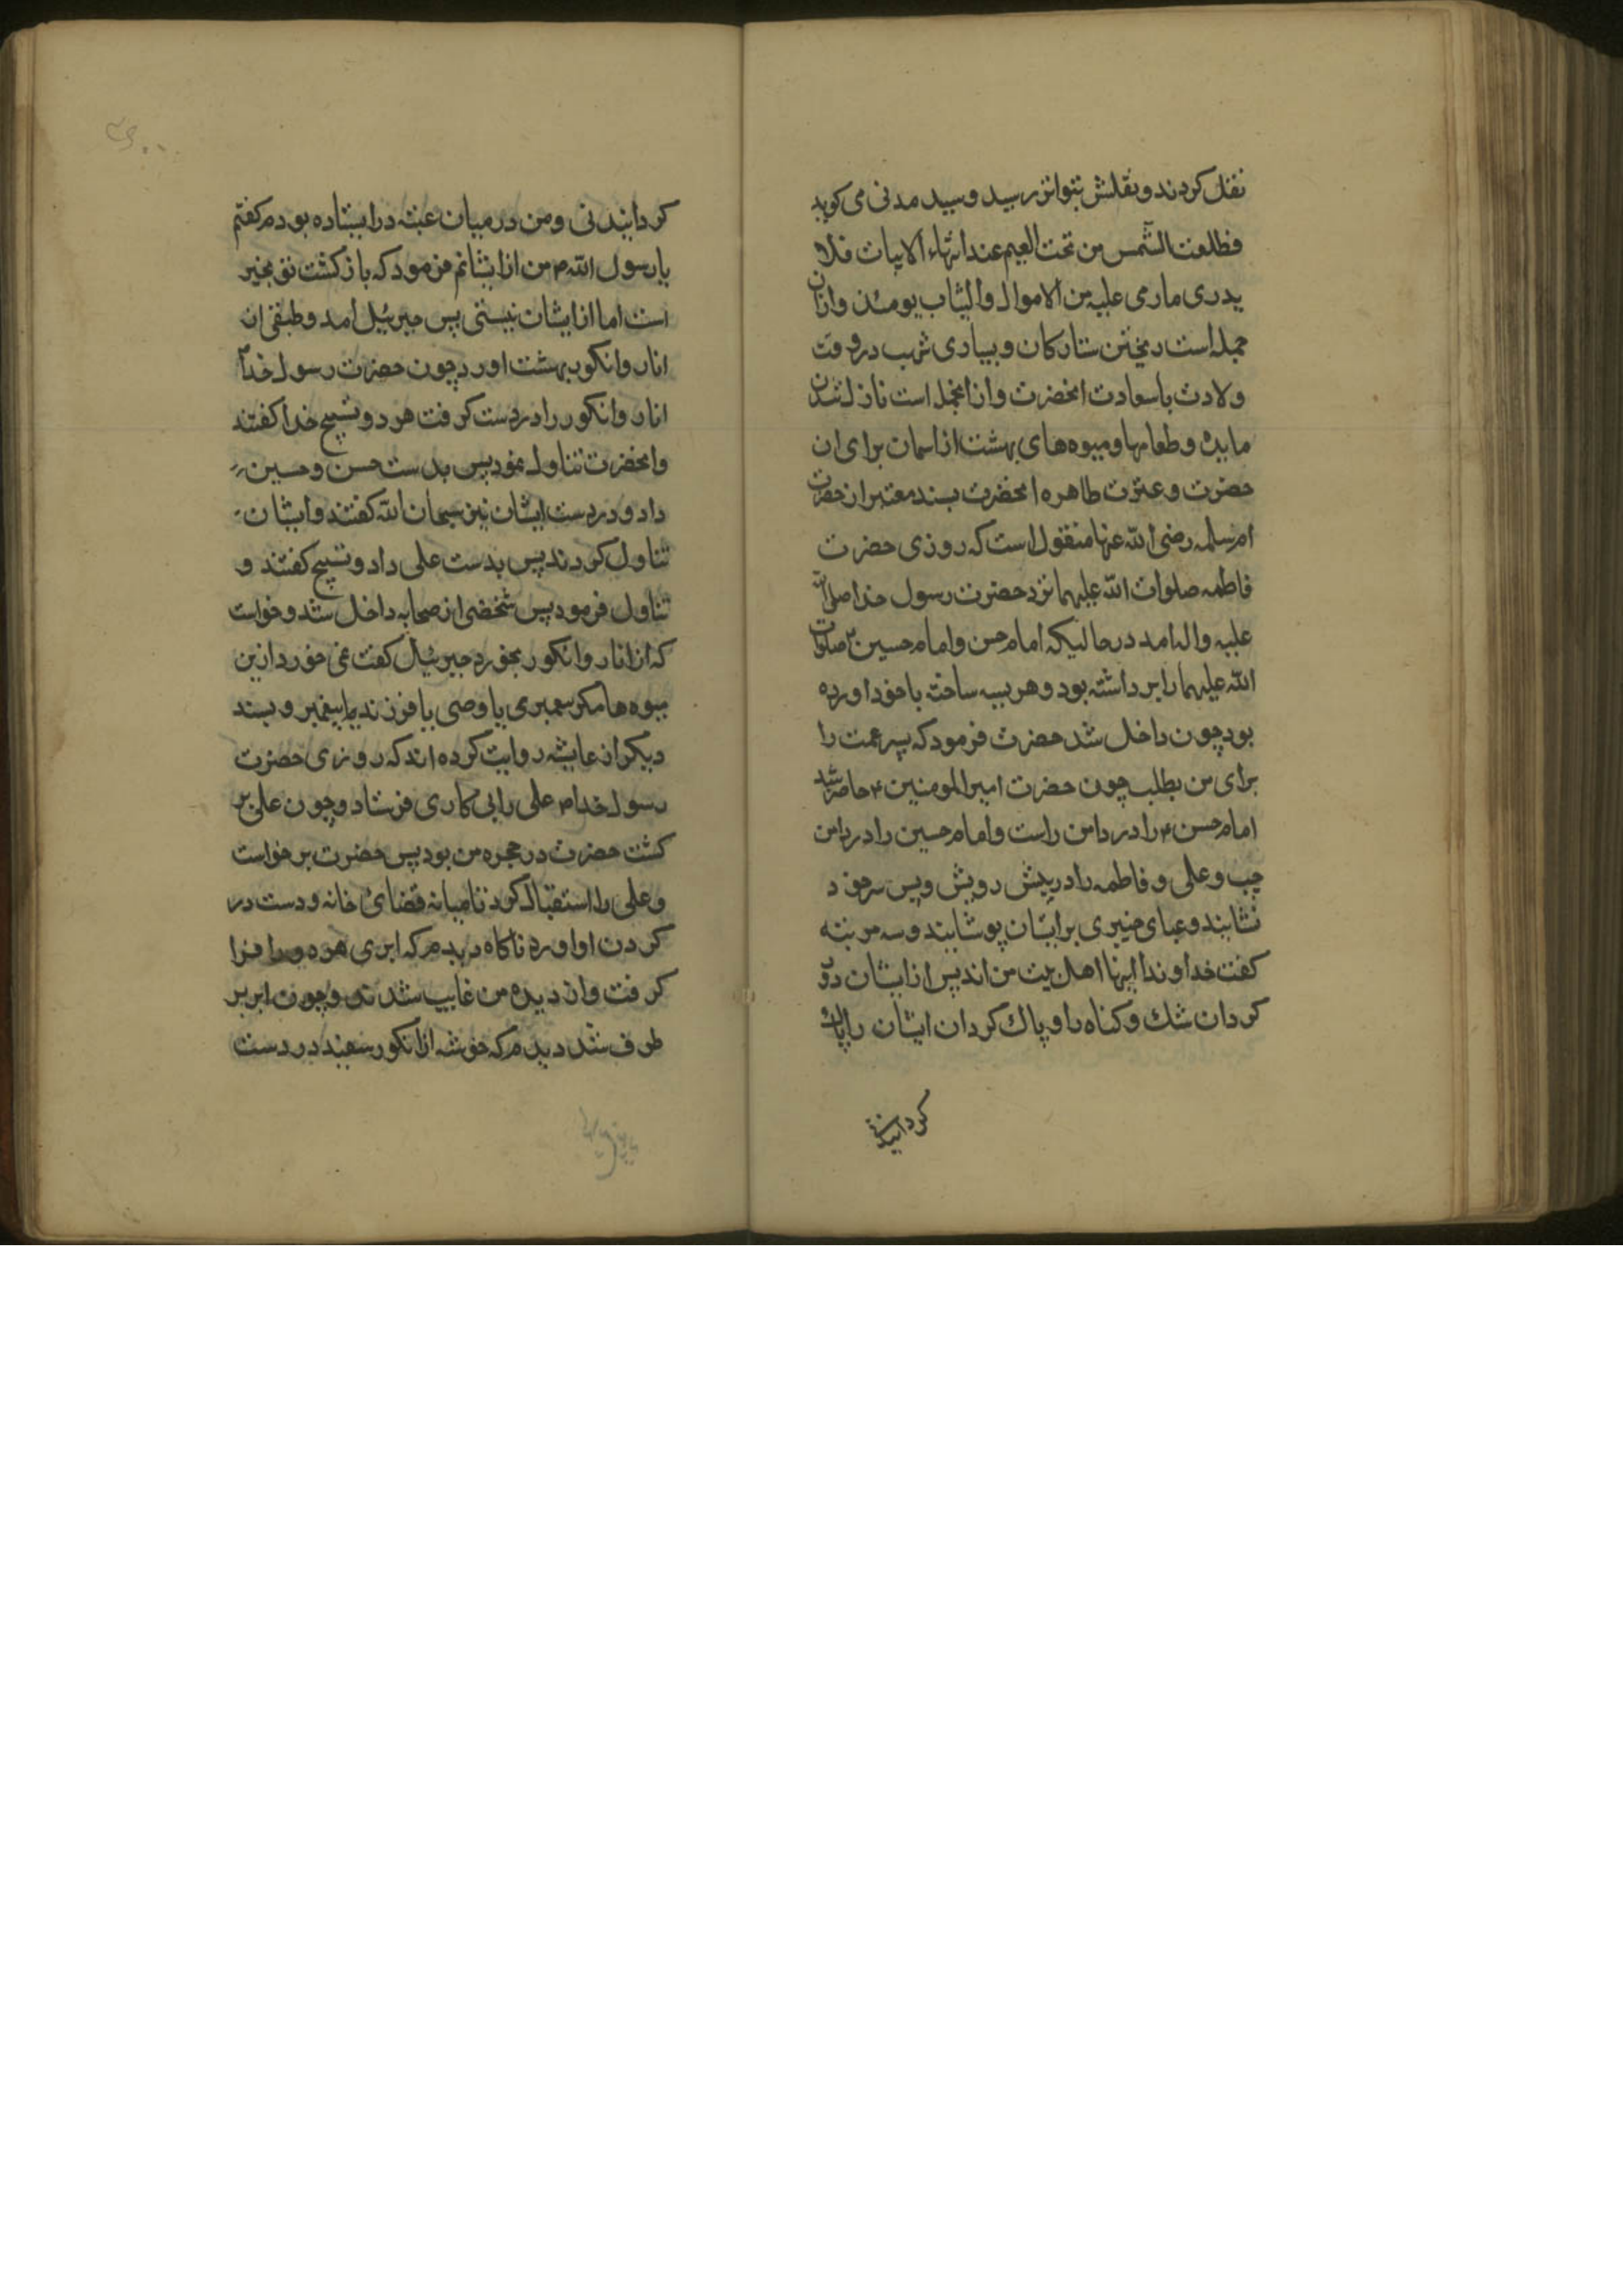 نقل کردند و نقلش بتواتر رسید و سید مدنی می کوید
فطلعت الشمس من تحت الغیم عند انتهاء الابیات فلا
یدری مارمی علیه من الاموال والثیاب یومئذ وازان
جمله است ریختن ستارکان و بسیاری شهب در وقت
ولادت باسعادت انحضرت و از انجمله است نازل شدن
مایده و طعامها و میوه های بهشت از اسمان برای ان
حضرت و عترت طاهره انحضرت بسند معتبر از حضرت
ام سلمه رضی الله عنها منقول است که روزی حضرت
فاطمه صلوات الله علیها نزد حضرت رسول خدا صلی الله
علیه واله امد در حالیکه امام حسن و امام حسین صلوات
الله علیهما را برداشته بود و هریسه ساخته باخود اورده
بود چون داخل شد حضرت فرمود که پسر عمت را
برای من بطلب چون حضرت امیرالمومنین ۴ حاضر شد
امام حسن ۴ را در دامن راست و امام حسین را در دامن
چپ و علی و فاطمه را در پیش روپش و پس سر خود
نشانید و عبای خیبری بر ایشان پوشانید و سه مرتبه
کفت خداوندا اینها اهل بیت من اند پس از ایشان دور
کردان شك و کناه را و پاك کردان ایشان را پاك
کردانیدنی
کردانیدنی و من در میان عتبه در ایستاده بودم کفتم
یا رسول الله م من از ایشانم فرمود که بازکشت تو بخیر
است اما از ایشان نیستی پس جبرئیل امد و طبقی از
انار و انکور بهشت اورد چون حضرت رسول خدا
انار و انکور را در دست کرفت هر دو تسبیح خدا کفتند
و انحضرت تناول نمود پس بدست حسن و حسین
داد و در دست ایشان نیز سبحان الله کفتند و ایشان
تناول کردند پس بدست علی داد و تسبیح کفتند و
تناول فرمود پس شخصی از صحابه داخل شد و خواست
که از انار و انکور بخورد جبرئیل کفت نمی خورد ازین
میوه ها مکر پیغمبری یا وصی یا فرزند پیغمبر و بسند
دیکر از عایشه روایت کرده اند که روزی حضرت
رسول خدا م علی را پی کاری فرستاد و چون علی بر
کشت حضرت در حجره من بود پس حضرت برخواست
و علی را استقبال کرد تا میانه فضای خانه و دست در
کردن او اورد ناکاه دیدم که ابری هر دو را فرا
کرفت و از دیده من غایب شدند و چون ابر بر
طرف شد دیدم که خوشه از انکور سفید در دست